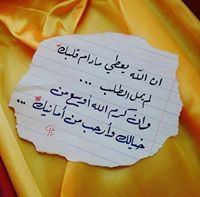 ان الله يعطي مادام قلبك
لم يمل الطلب ...
وان كرم الله أوسع من
خيالك وأرحب من أمانيك ...